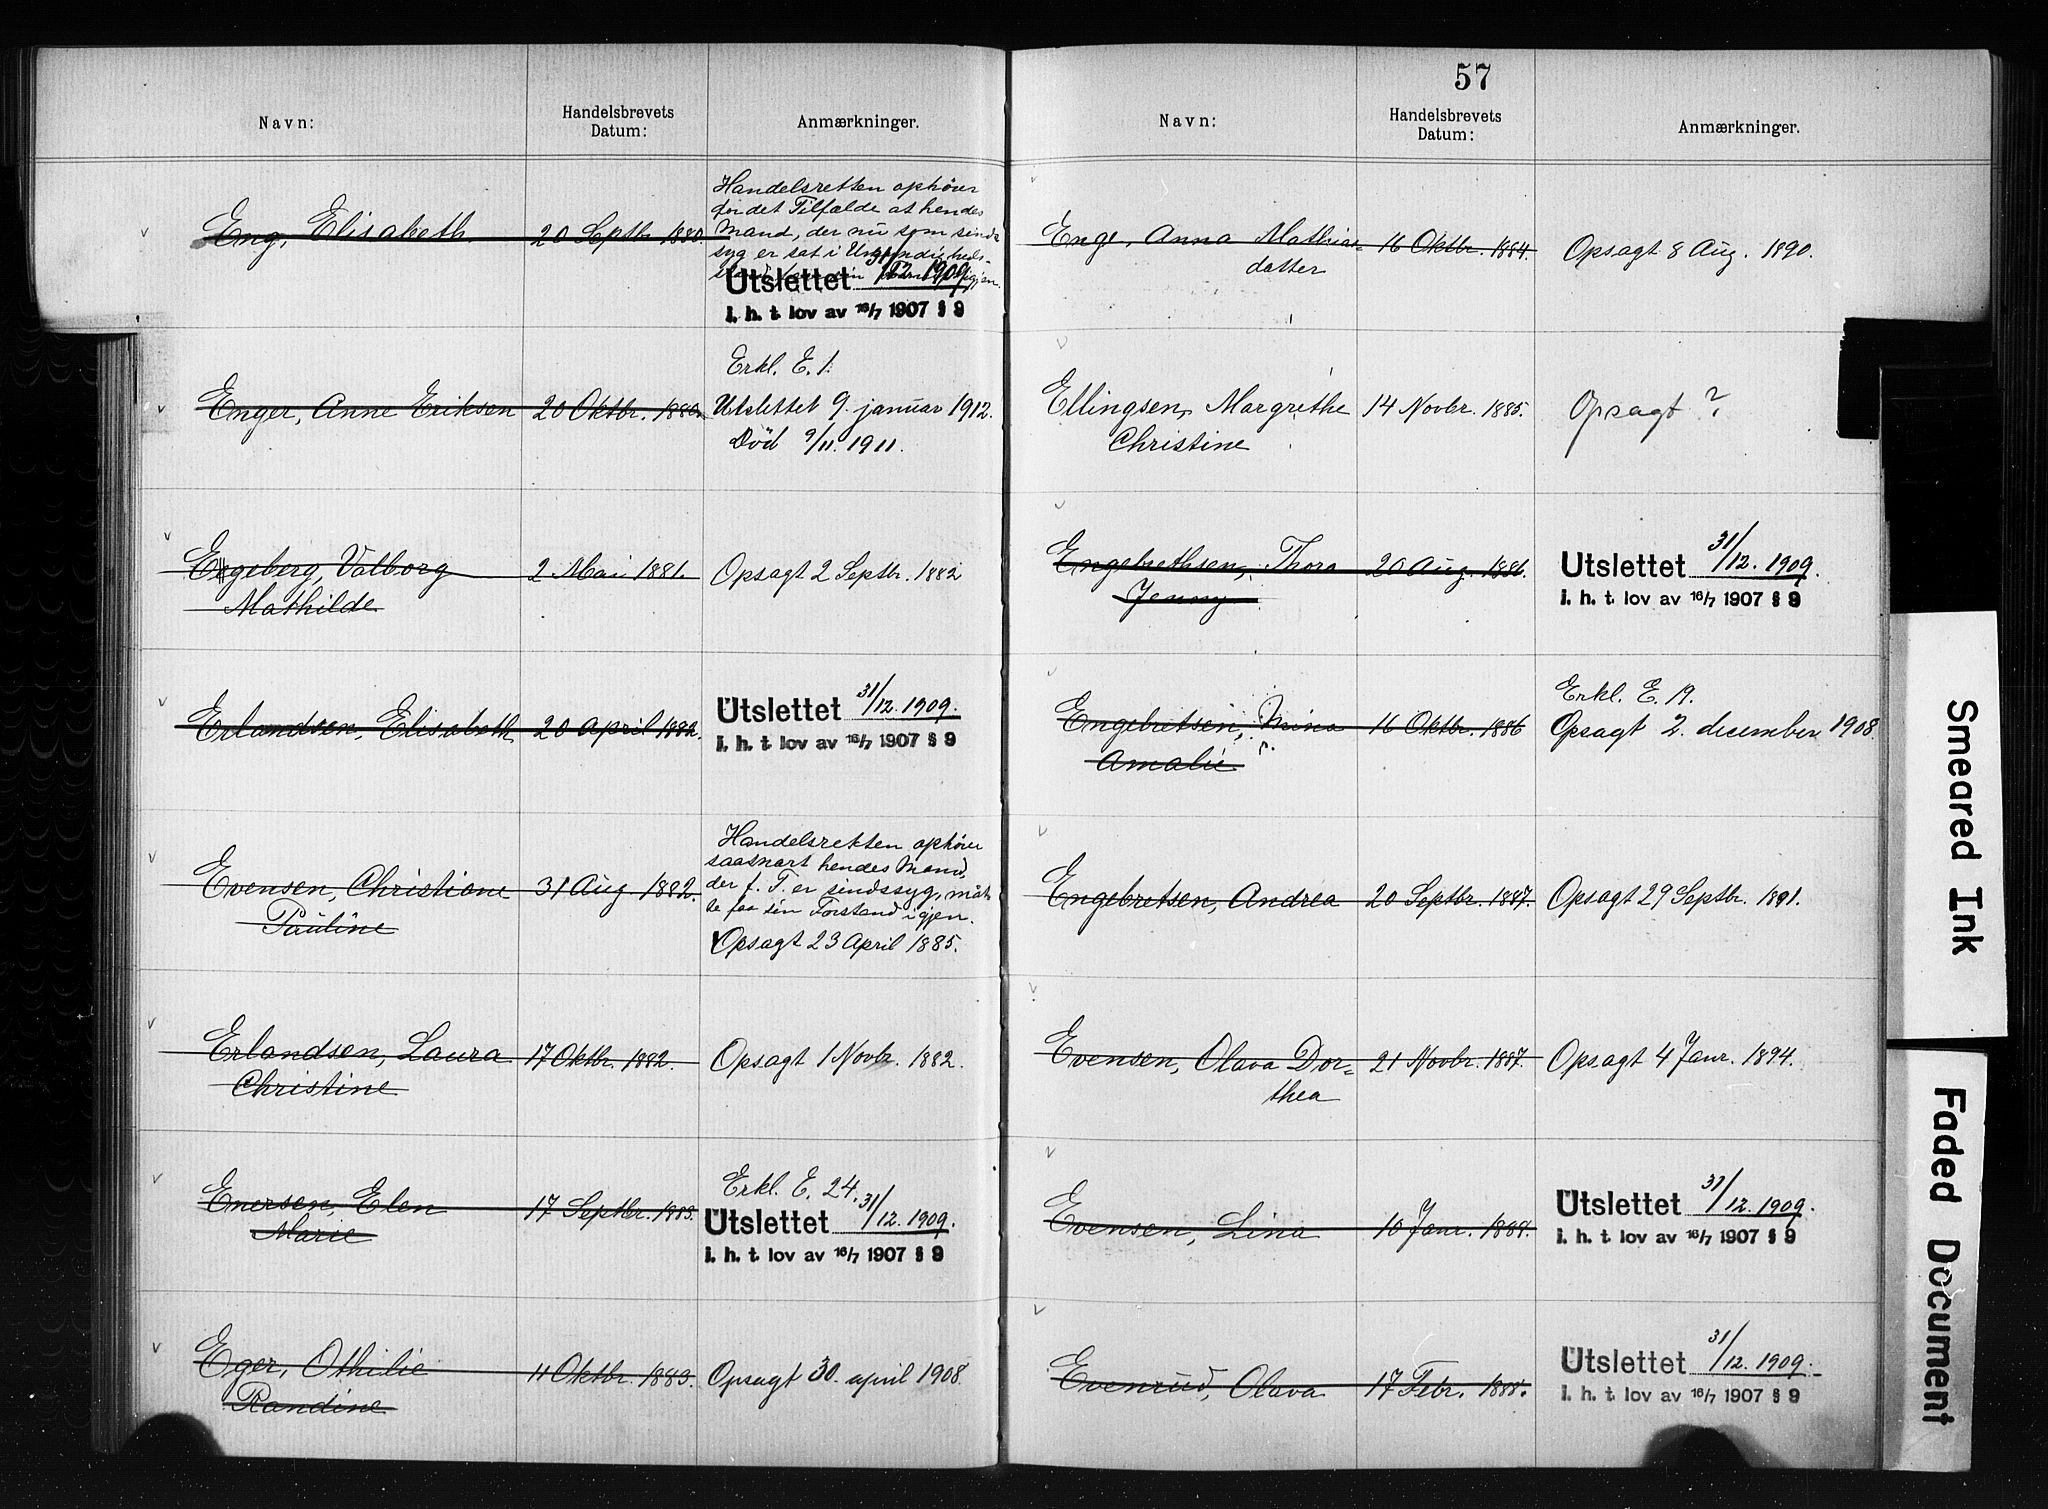 Navn:
Handelsbrevets
Datum:
Anmærkninger.
Eng, Elisabeth. 20 Septbr. 1880.
Handelsretten ophører
for det Tilfælde at hendes
Mand, der nu som sinds
syg er sat i Umyndigheds-
igjen.
Utslettet 31/12. 1909.
i. h. t. lov av 16/7 1907 § 9
Enger, Anne Eriksen 20 Oktbr. 1880.
Erkl. E. 1.
Utslettet 9. januar 1912.
Död 9/11. 1911.
Engeberg, Valborg 2 Mai 1881. Opsagt 2 Septbr. 1882
Mathilde
Erlandsen, Elisabeth 20 April 1882.
Utslettet 31/12. 1909.
i. h. t. lov av 16/7 1907 § 9
Evensen, Christiane 31 Aug. 1882.
Pauline
Handelsretten ophører
saasnart hendes Mand,
der f. T. er sindssyg, maat-
te faa sin Forstand igjen.
Opsagt 23 April 1885.
Erlandsen, Laura 17 Oktbr. 1882. Opsagt 1 Novbr. 1882.
Christine
Enersen, Elen 17 Septbr. 1883.
Marie
Erkl. E. 24.
Utslettet 31/12. 1909.
i. h. t. lov av 16/7 1907 § 9
Eger, Othilie 11 Oktbr. 1883. Opsagt 30. april 1908.
Randine
57
Navn:
Handelsbrevets
Datum:
Anmærkninger.
Enge, Anna Mathias- 16 Oktbr. 1884. Opsagt 8 Aug. 1890.
datter
Ellingsen, Margrethe 14 Novbr. 1885. Opsagt ?
Christine
Engebrethsen, Thora 20 Aug. 1886.
Jenny
Utslettet 31/12. 1909.
i. h. t. lov av 16/7 1907 § 9
Engebretsen, Mina 16 Oktbr. 1886
Amalie
Erkl. E. 19.
Opsagt 2. december 1908.
Engebretsen, Andrea 20 Septbr. 1887. Opsagt 29 Septbr. 1891.
Evensen, Olava Dor= 21 Novbr. 1887. Opsagt 4 Janr. 1894.
thea
Evensen, Lina 10 Janr. 1888.
Utslettet 31/12. 1909.
i. h. t. lov av 16/7 1907 § 9
Evenrud, Olava 17 Febr. 1888.
Utslettet 31/12. 1909.
i. h. t. lov av 16/7 1907 § 9
Smeared Ink
Faded Document